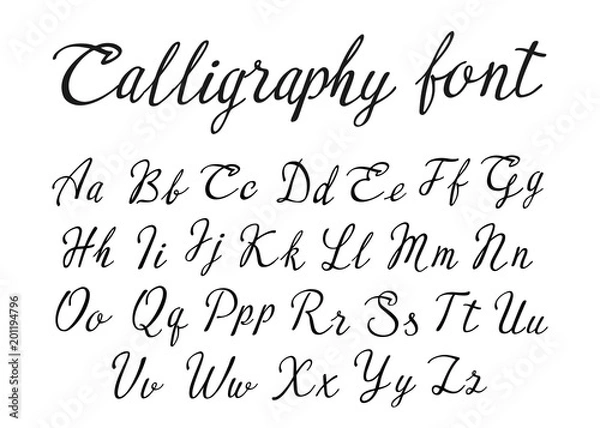 Calligraphy font
Aa Bb Cc Dd Ee Ff Gg
Hh Ii Jj Kk Ll Mm Nn
Oo Qq Ppp Rr Ss Tt Uu
Vv Ww Xx Yy Zz
Adobe Stock | #201194796